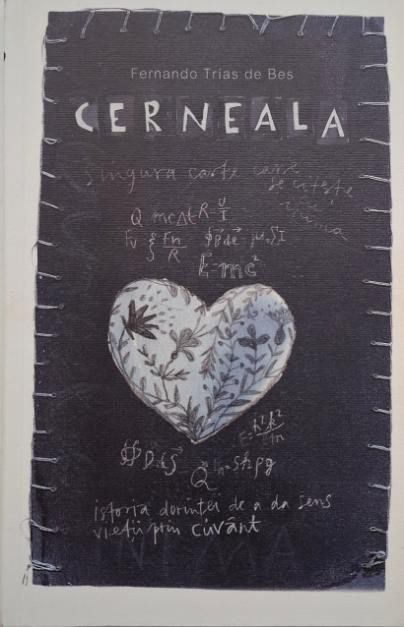 Fernando Trías de Bes
CERNEALA
Singura carte care
se citește
cu
inima
Q mcΔt R=U/I
E=mc²
Q
istoria dorinței de a da sens
vieții prin cuvânt